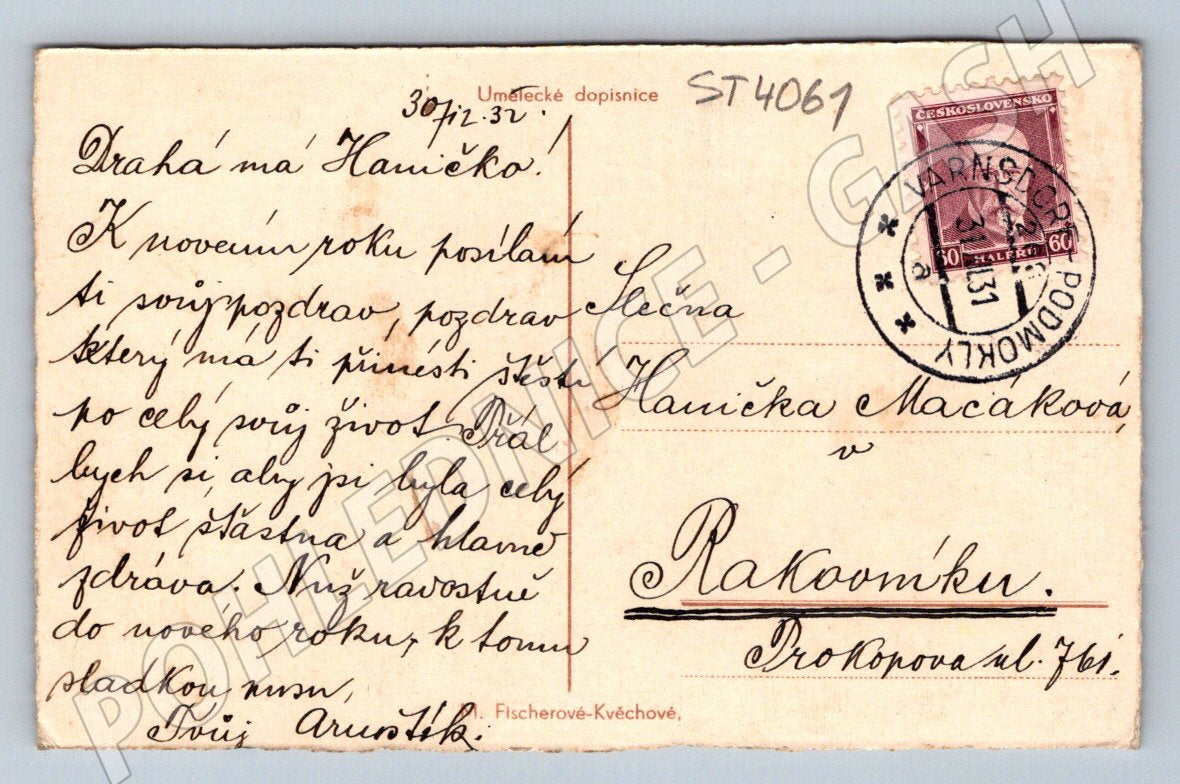 Umělecké dopisnice
ST4061
30/12.32.
Drahá má Haničko!
K novému roku posílám
ti svůj pozdrav, pozdrav
který má ti přinésti štěstí
po celý svůj život. Přál
bych si, aby jsi byla celý
život šťastna a hlavně
zdráva. Nuž radostně
do nového roku, k tomu
sladkou pusu,
Tvůj Arnoštík.
M. Fischerové-Kvěchové,
ČESKOSLOVENSKO
60 HALÉŘŮ 60
VARNSDORF-PODMOKLY
a
Slečna
Hanička Macáková,
v
Rakovníku.
Prokopova ul. 761.
POHLEDNICE - GASH